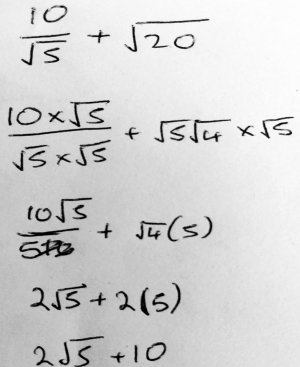 10/√5 + √20
10×√5/√5×√5 + √5√4 ×√5
10√5/5 + √4(5)
2√5 + 2(5)
2√5 +10